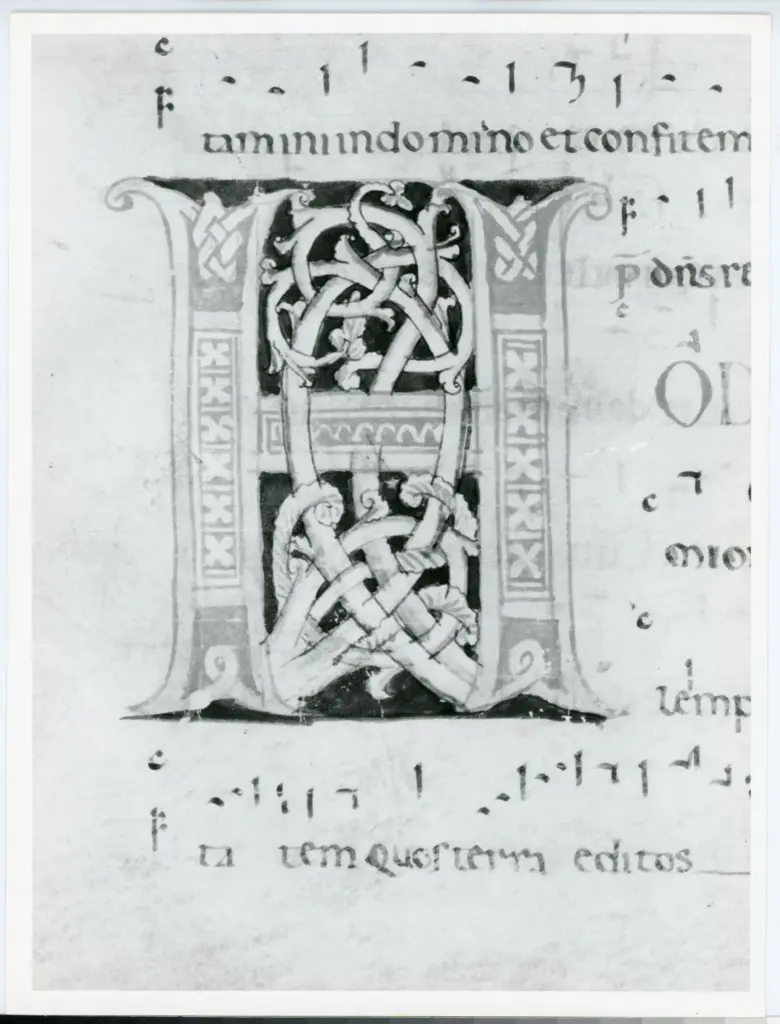 c
F
tamini indomino et confitem
H
F
p̄ dn̄s re
c
OD
c
mio
c
lemp
c
F
ta tem Quos terra editos